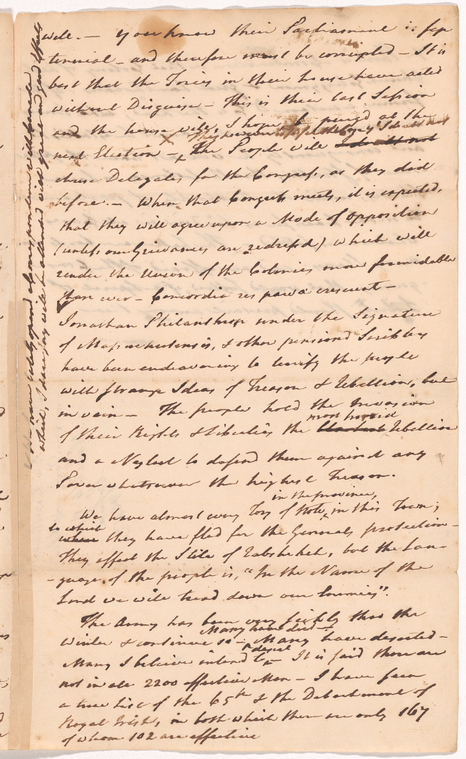 well. — you know their Parliament is sep
tennial — and therefore must be corrupted — It is
best that the Tories in their house have acted
without Disguise — This is their last Session
and the house will, I hope be purged at the
next Election —
The People will
chuse Delegates for the Congress, as they did
before. — When that Congress meets, it is expected,
that they will agree upon a Mode of Opposition
(unless our Grievances are redressd) which will
render the Union of the Colonies more formidable
than ever — Concordia res parvæ crescunt —
Jonathan Philanthrop under the Signature
of Massachusettensis, & other pensiond Scribblers
have been endeavoring to terrify the people
with strange Ideas of Treason & Rebellion, but
in vain — The people hold the Invasion
of their Rights & Liberties the most horrid Rebellion
and a Neglect to defend them against any
Power whatsoever the highest Treason.
We have almost every Tory of Note in the province, in this Town;
to which they have fled for the Generals protection —
They affect the Stile of Rabshekeh, but the Lan-
guage of the people is, "In the Name of the
Lord we will tread down our Enemies".
The Army has been very sickly thro the
Winter & continue so — Many have died — Many have deserted —
Many I believe intend to desert — It is said there are
not in all 2200 effective Men — I have seen
a true list of the 65th & the Detachment of
Royal Irish, in both which there are only 167
of whom 102 are effective